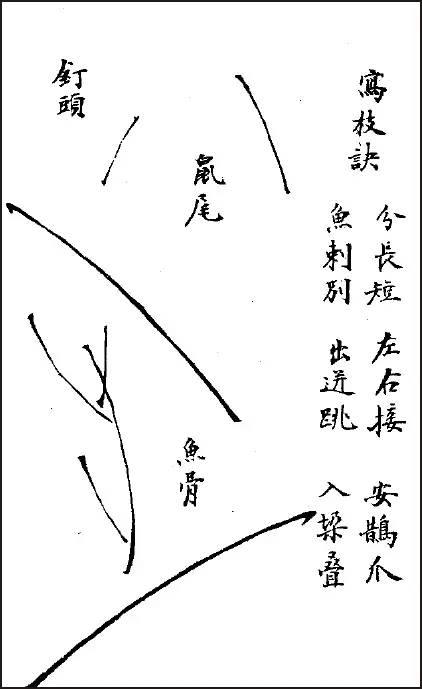 寫枝訣
分長短 左右接 安鵲爪
魚刺別 出迸跳 入叠
鼠尾
魚骨
釘頭